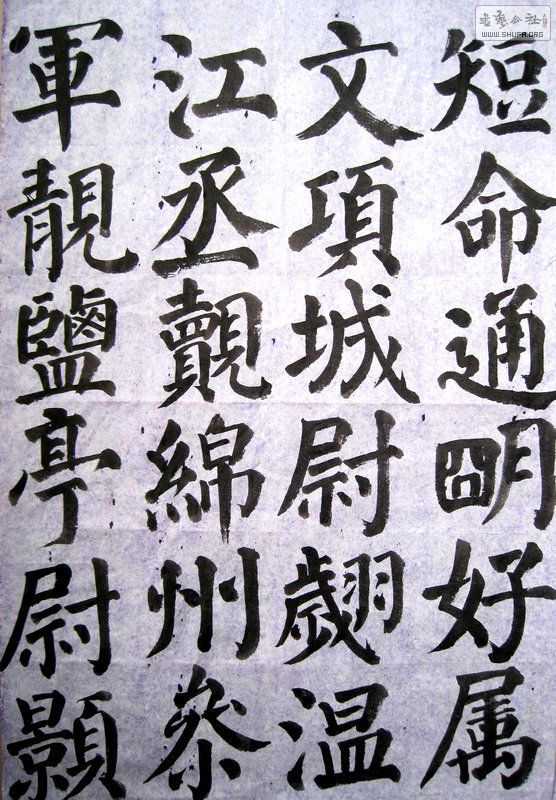 短命通明好属
文項城尉翽温
江丞覿綿州叅
軍靚鹽亭尉顥
書藝公社
WWW.SHUFA.ORG